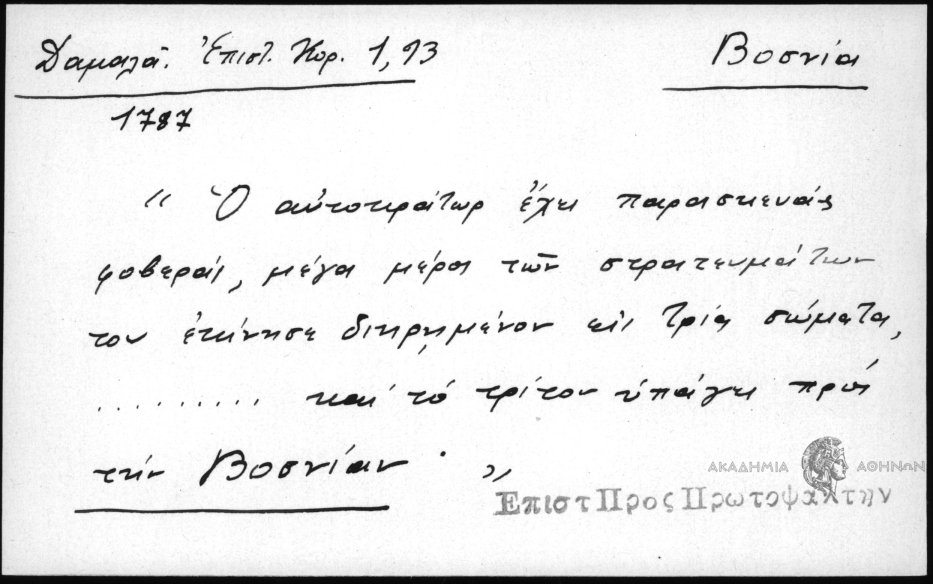 Δαμαλᾶ. Ἐπιστ. Κορ. 1,93
Βοσνία
1787
“ Ὁ αὐτοκράτωρ ἔχει παρασκευάς
φοβεράς, μέγα μέρος τῶν στρατευμάτων
του ἐκίνησε διῃρημένον εἰς τρία σώματα,
.......... καί τό τρίτον ὑπάγει πρός
τήν Βοσνίαν. ”
ΑΚΑΔΗΜΙΑ ΑΘΗΝΩΝ
Επιστ Προς Πρωτοψαλτην